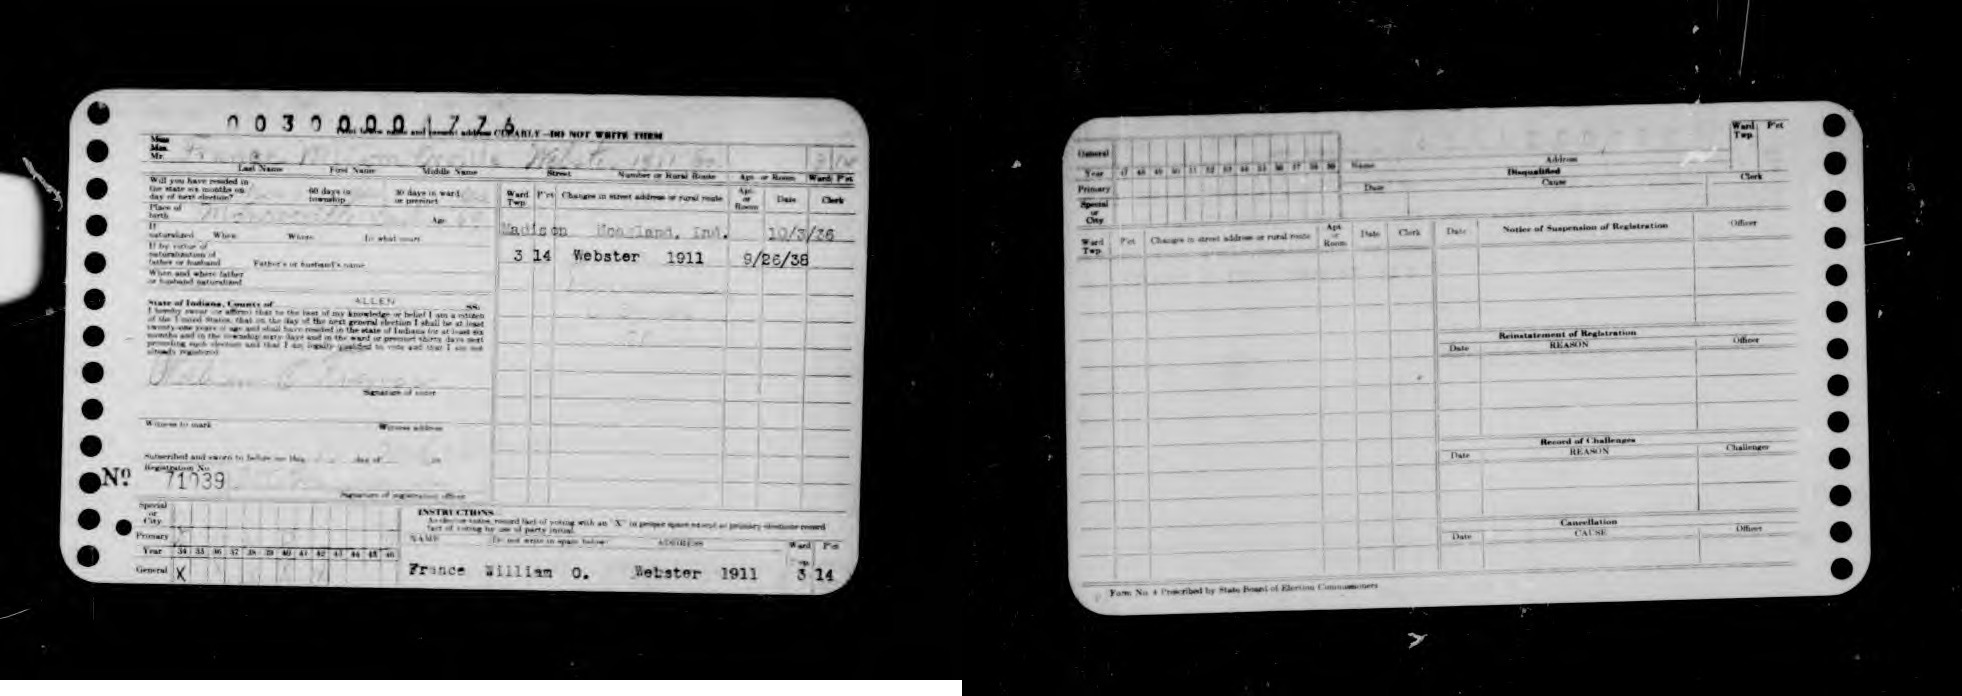 0030000 1776
Print below name and present address CLEARLY—DO NOT WRITE THEM
Miss
Mrs.
Mr. France William Webster 1911 3 14
Last Name First Name Middle Name Street Number or Rural Route Apt. or Room Ward P'ct
Will you have resided in
the state six months on
day of next election?
60 days in
township
30 days in ward
or precinct
Place of
birth
Age
If
naturalized When Where In what court
If by virtue of
naturalization of
father or husband Father's or husband's name
When and where father
or husband naturalized
State of Indiana, County of ALLEN SS:
I hereby swear or affirm that to the best of my knowledge or belief I am a citizen
of the United States, that on the day of the next general election I shall be at least
twenty-one years of age and shall have resided in the state of Indiana for at least six
months and in the township sixty days and in the ward or precinct thirty days next
preceding such election and that I am legally qualified to vote and that I am not
already registered
Signature of voter
Witness to mark Witness address
Subscribed and sworn to before me this day of 19
Registration No.
No. 71039
Signature of registration officer
Ward
Twp.
P'ct Changes in street address or rural route
Apt.
or
Room
Date Clerk
Madison Hoagland, Ind. 10/3/36
3 14 Webster 1911 9/26/38
Special
or
City
Primary
Year 34 35 36 37 38 39 40 41 42 43 44 45 46
General X
INSTRUCTIONS
As election notes, record fact of voting with an "X" in proper space except at primary elections record
fact of voting by use of party initial.
NAME Do not write in space below ADDRESS Ward P'ct
Twp.
France William O. Webster 1911 3 14
General
Year 47 48 49 50 51 52 53 54 55 56 57 58 59
Primary
Special
or
City
Name Address
Ward
Twp.
P'ct
Disqualified
Date Cause Clerk
Ward
Twp.
P'ct Changes in street address or rural route
Apt.
or
Room
Date Clerk
Date Notice of Suspension of Registration Officer
Reinstatement of Registration
Date REASON Officer
Record of Challenges
Date REASON Challenger
Cancellation
Date CAUSE Officer
Form No. 4 Prescribed by State Board of Election Commissioners